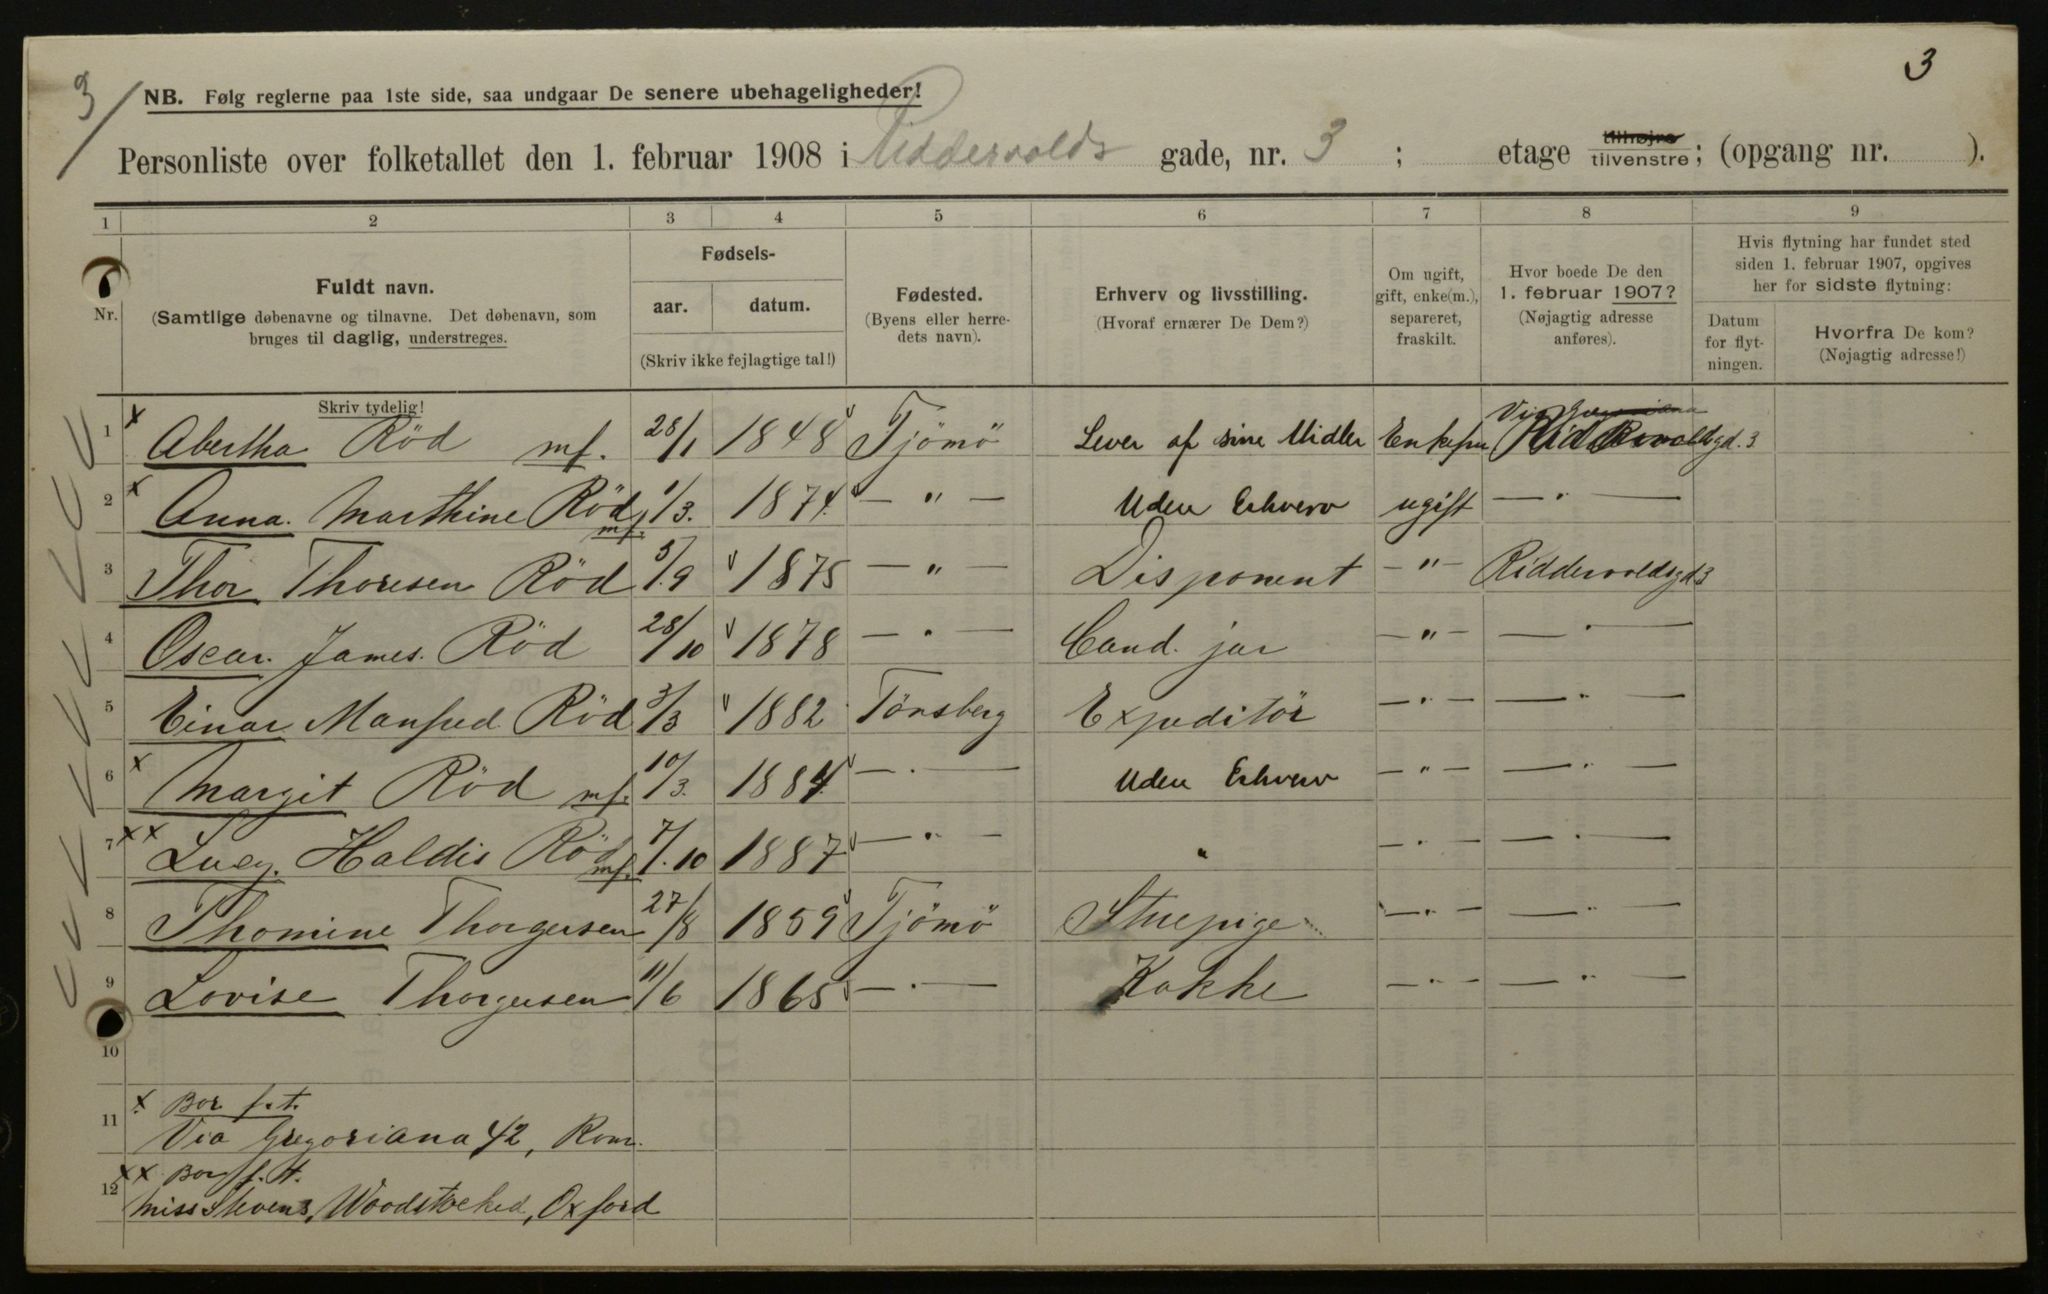 3
3
NB. Følg reglerne paa 1ste side, saa undgaar De senere ubehageligheder!
Personliste over folketallet den 1. februar 1908 i Riddervolds gade, nr. 3 ; etage tilhøjre tilvenstre; (opgang nr. ).
1 2 3 4 5 6 7 8 9
Nr.
Fuldt navn.
(Samtlige døbenavne og tilnavne. Det døbenavn, som
bruges til daglig, understreges.
Skriv tydelig!
Fødsels-
aar. datum.
(Skriv ikke fejlagtige tal!)
Fødested.
(Byens eller herre-
dets navn).
Erhverv og livsstilling.
(Hvoraf ernærer De Dem?)
Om ugift,
gift, enke(m.),
separeret,
fraskilt.
Hvor boede De den
1. februar 1907?
(Nøjagtig adresse
anføres).
Hvis flytning har fundet sted
siden 1. februar 1907, opgives
her for sidste flytning:
Datum
for flyt-
ningen.
Hvorfra De kom?
(Nøjagtig adresse!)
Via Gregoriana
1 x Abertha Röd mf. 28/1 1848 Tjömö Lever af sine Midler Enkefru Riddervoldsgd. 3
2 x Anna. Marthine Röd mf. 1/3. 1874. — " — Uden Erhverv ugift — " —
3 Thor Thoresen Röd 5/9 1875 — " — Disponent — " — Riddervoldsgd 3
4 Oscar. James. Röd 28/10 1878 — " — Cand. jur — " — — " —
5 Einar Manfred Röd 3/3 1882 Tönsberg Expeditör — " — — " —
6 x Margit Röd mf. 10/3. 1884. — " — Uden Erhverv — " — — " —
7 xx Lucy. Haldis Röd mf. 7/10 1887 — " — " — " — — " —
8 Thomine Thorgersen 27/8 1859 Tjömö Stuepige — " — — " —
9 Lovise Thorgersen 11/6 1865 — " — Kokke — " — — " —
10
x Bor f. t.
11 Via Gregoriana 42, Rom.
xx Bor f. t.
12 Miss Stevens, Woodstockrd, Oxford